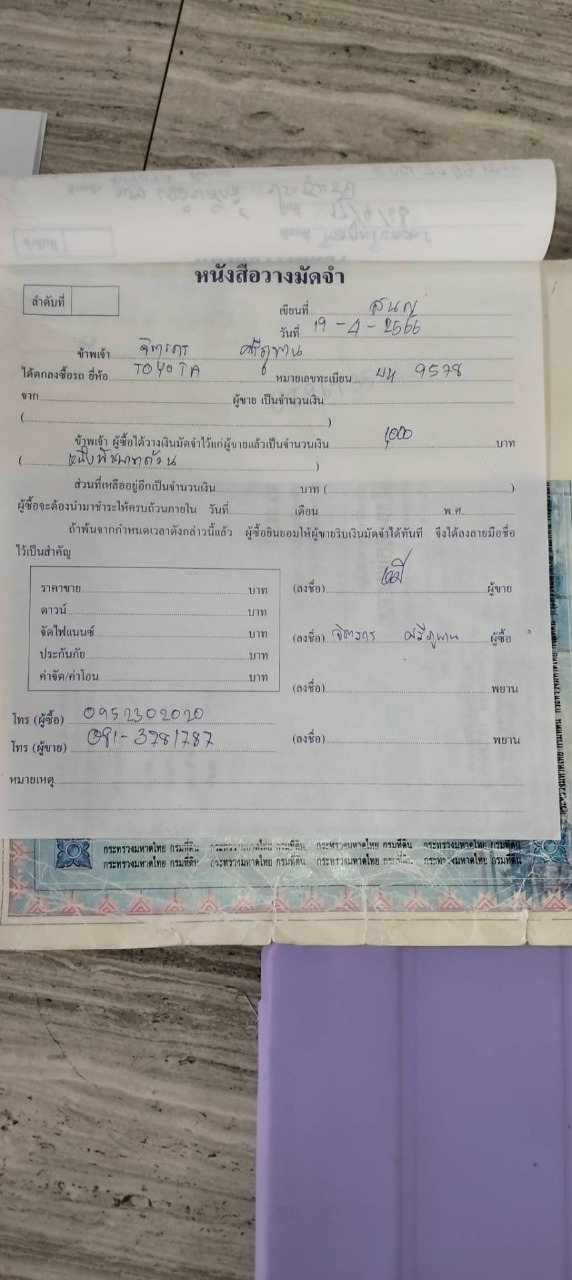 หนังสือวางมัดจำ
ลำดับที่
เขียนที่
วันที่ 19-4-2566
ข้าพเจ้า จิตรกร
ได้ตกลงซื้อรถ ยี่ห้อ TOYOTA หมายเลขทะเบียน 9578
จาก ผู้ขาย เป็นจำนวนเงิน
( )
ข้าพเจ้า ผู้ซื้อได้วางเงินมัดจำไว้แก่ผู้ขายแล้วเป็นจำนวนเงิน 1,000 บาท
( หนึ่งพันบาทถ้วน )
ส่วนที่เหลืออยู่อีกเป็นจำนวนเงิน บาท ( )
ผู้ซื้อจะต้องนำมาชำระให้ครบถ้วนภายใน วันที่ เดือน พ.ศ.
ถ้าพ้นจากกำหนดเวลาดังกล่าวนี้แล้ว ผู้ซื้อยินยอมให้ผู้ขายริบเงินมัดจำได้ทันที จึงได้ลงลายมือชื่อ
ไว้เป็นสำคัญ
ราคาขาย บาท
ดาวน์ บาท
จัดไฟแนนซ์ บาท
ประกันภัย บาท
ค่าจัด/ค่าโอน บาท
(ลงชื่อ) ผู้ขาย
(ลงชื่อ) จิตรกร ผู้ซื้อ
(ลงชื่อ) พยาน
(ลงชื่อ) พยาน
โทร (ผู้ซื้อ) 0952302020
โทร (ผู้ขาย) 081-3781787
หมายเหตุ
กระทรวงมหาดไทย กรมที่ดิน กระทรวงมหาดไทย กรมที่ดิน กระทรวงมหาดไทย กรมที่ดิน กระทรวงมหาดไทย กรมที่ดิน
กระทรวงมหาดไทย กรมที่ดิน กระทรวงมหาดไทย กรมที่ดิน กระทรวงมหาดไทย กรมที่ดิน กระทรวงมหาดไทย กรมที่ดิน